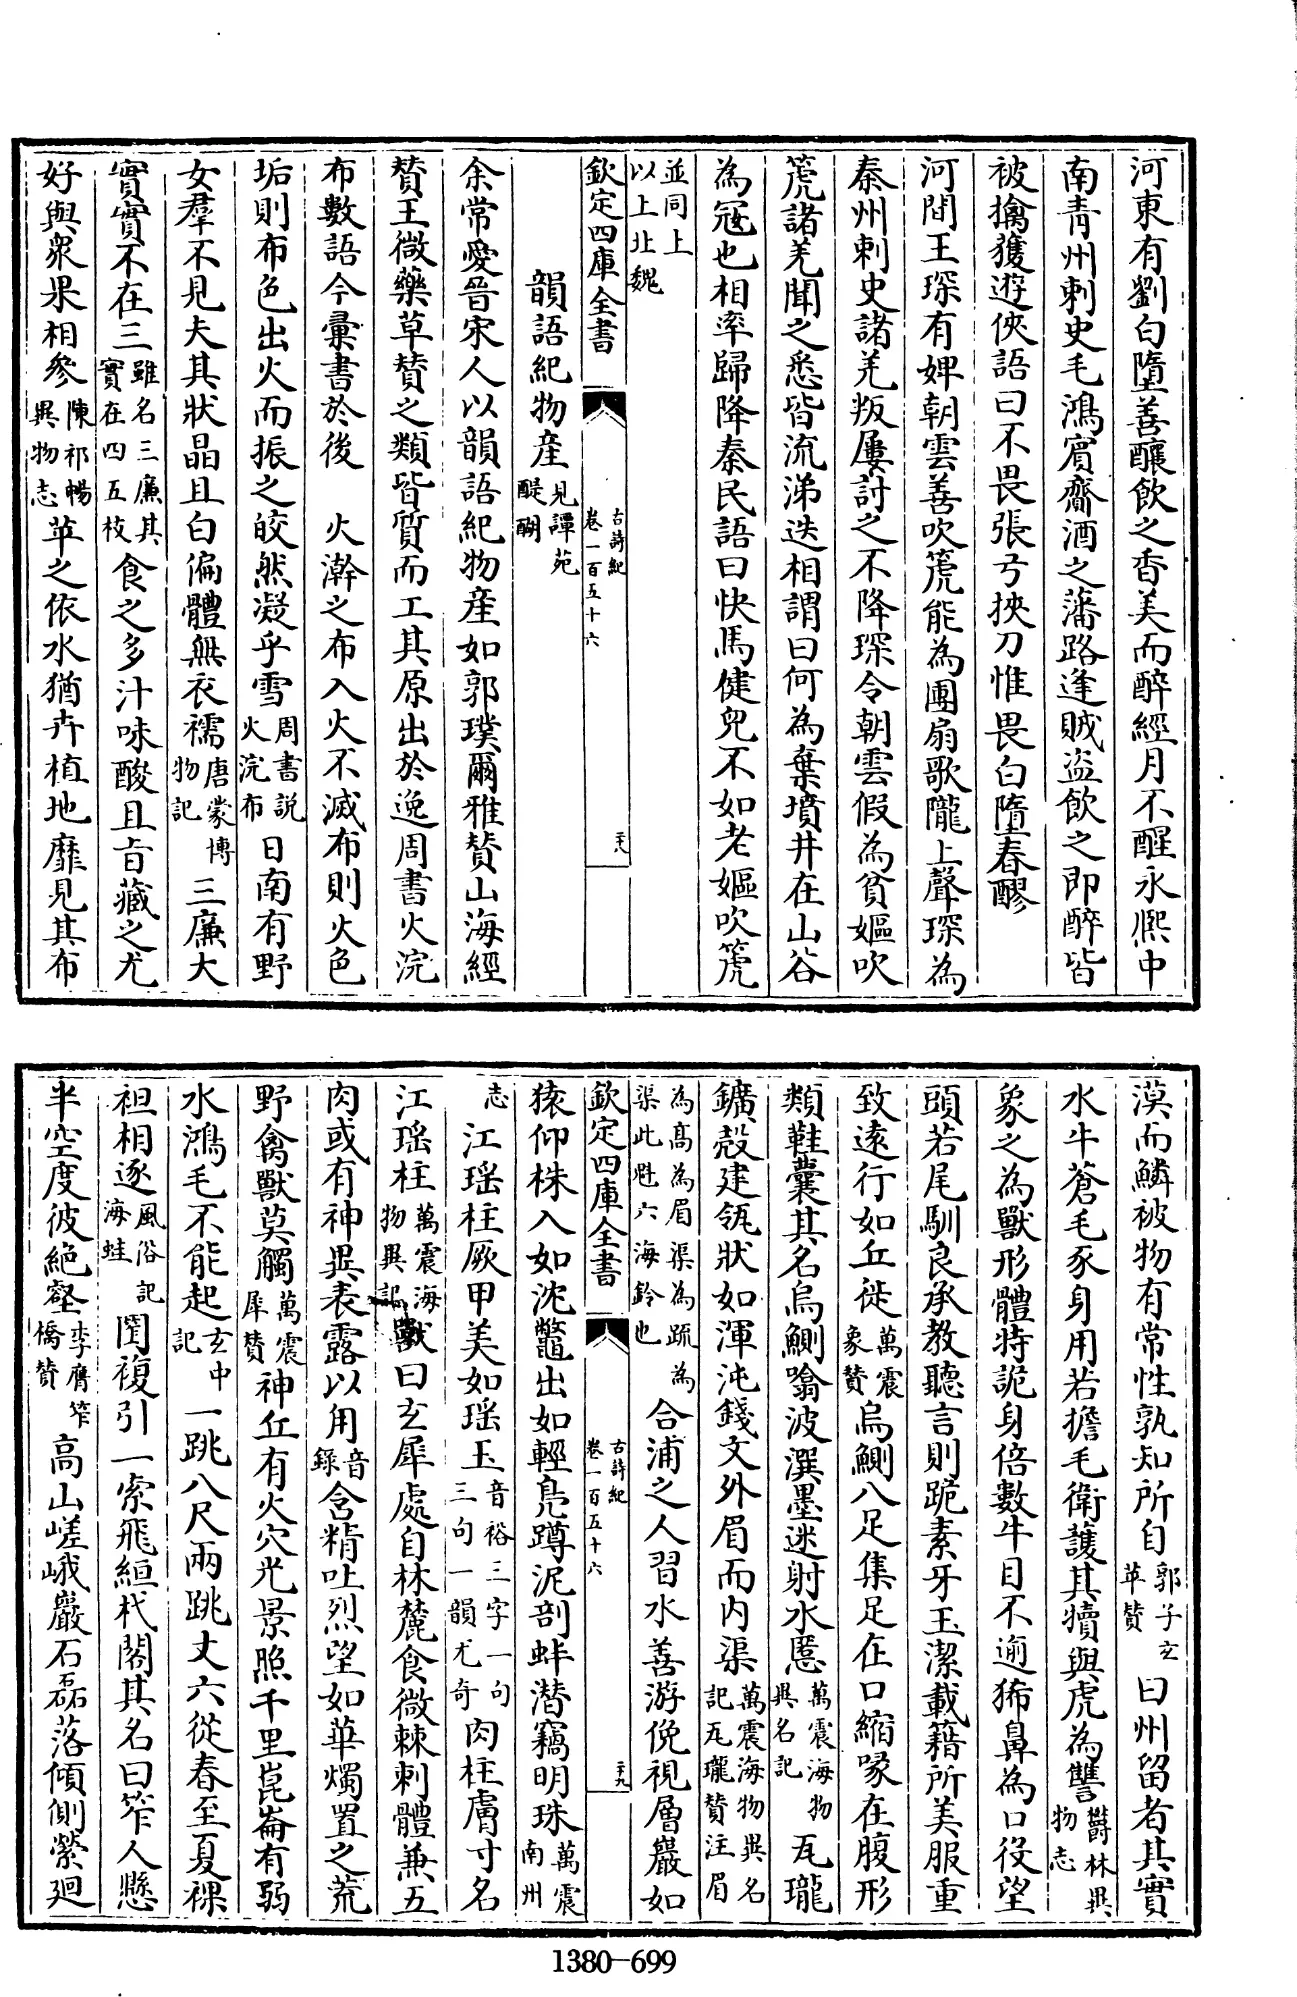 河東有劉白墮善釀飲之香美而醉經月不醒永熙中
南青州刺史毛鴻賓齎酒之藩路逢賊盜飲之即醉皆
被擒獲遊俠語曰不畏張弓挾刀惟畏白墮春醪
河間王琛有婢朝雲善吹箎能為團扇歌隴上聲琛為
秦州刺史諸羌叛屢討之不降琛令朝雲假為貧嫗吹
箎諸羌聞之悉皆流涕迭相謂曰何為棄墳井在山谷
為冦也相率歸降秦民語曰快馬健兒不如老嫗吹箎
並同上
以上北魏
欽定四庫全書
古詩紀
卷一百五十六
二十八
韻語紀物產見譚苑醍醐
余常愛晉宋人以韻語紀物產如郭璞爾雅贊山海經
贊王微藥草贊之類皆質而工其原出於逸周書火浣
布數語今彙書於後 火澣之布入火不滅布則火色
垢則布色出火而振之皎然凝乎雪周書說火浣布日南有野
女羣不見夫其狀晶且白徧體無衣襦唐蒙博物記三廉大
實實不在三雖名三廉其實在四五枝食之多汁味酸且旨藏之尤
好與衆果相參陳祁暢異物志苹之依水猶卉植地靡見其布
漠而鱗被物有常性孰知所自郭子玄苹贊曰州留者其實
水牛蒼毛豕身用若擔毛衛護其犢與虎為讐欝林異物志
象之為獸形體特詭身倍數牛目不逾狶鼻為口役望
頭若尾馴良承教聽言則跪素牙玉潔載籍所美服重
致遠行如丘徙萬震象贊烏鰂八足集足在口縮喙在腹形
類鞋囊其名烏鰂噏波潠墨迷射水慝萬震海物異名記瓦瓏
鑛殻建瓴狀如渾沌錢文外眉而内渠萬震海物異名記瓦瓏贊注眉
為高為眉渠為疏為渠此魁六海鈴也合浦之人習水善游俛視層巖如
欽定四庫全書
古詩紀
卷一百五十六
二十九
猿仰株入如沈鼈出如輕鳧蹲泥剖蚌潛竊明珠萬震南州
志江瑶柱厥甲美如瑶玉音裕三字一句三句一韻尤奇肉柱膚寸名
江瑶柱萬震海物異記獸曰玄犀處自林麓食微棘刺體兼五
肉或有神異表露以用音錄含精吐烈望如華燭置之荒
野禽獸莫觸萬震犀贊神丘有火穴光景照千里崑崙有弱
水鴻毛不能起玄中記一跳八尺兩跳丈六從春至夏裸
袒相逐風俗記海蛙閣複引一索飛絙杙閣其名曰笮人懸
半空度彼絶壑李膺笮橋贊高山嵯峨巖石磊落傾側縈廻
1380-699